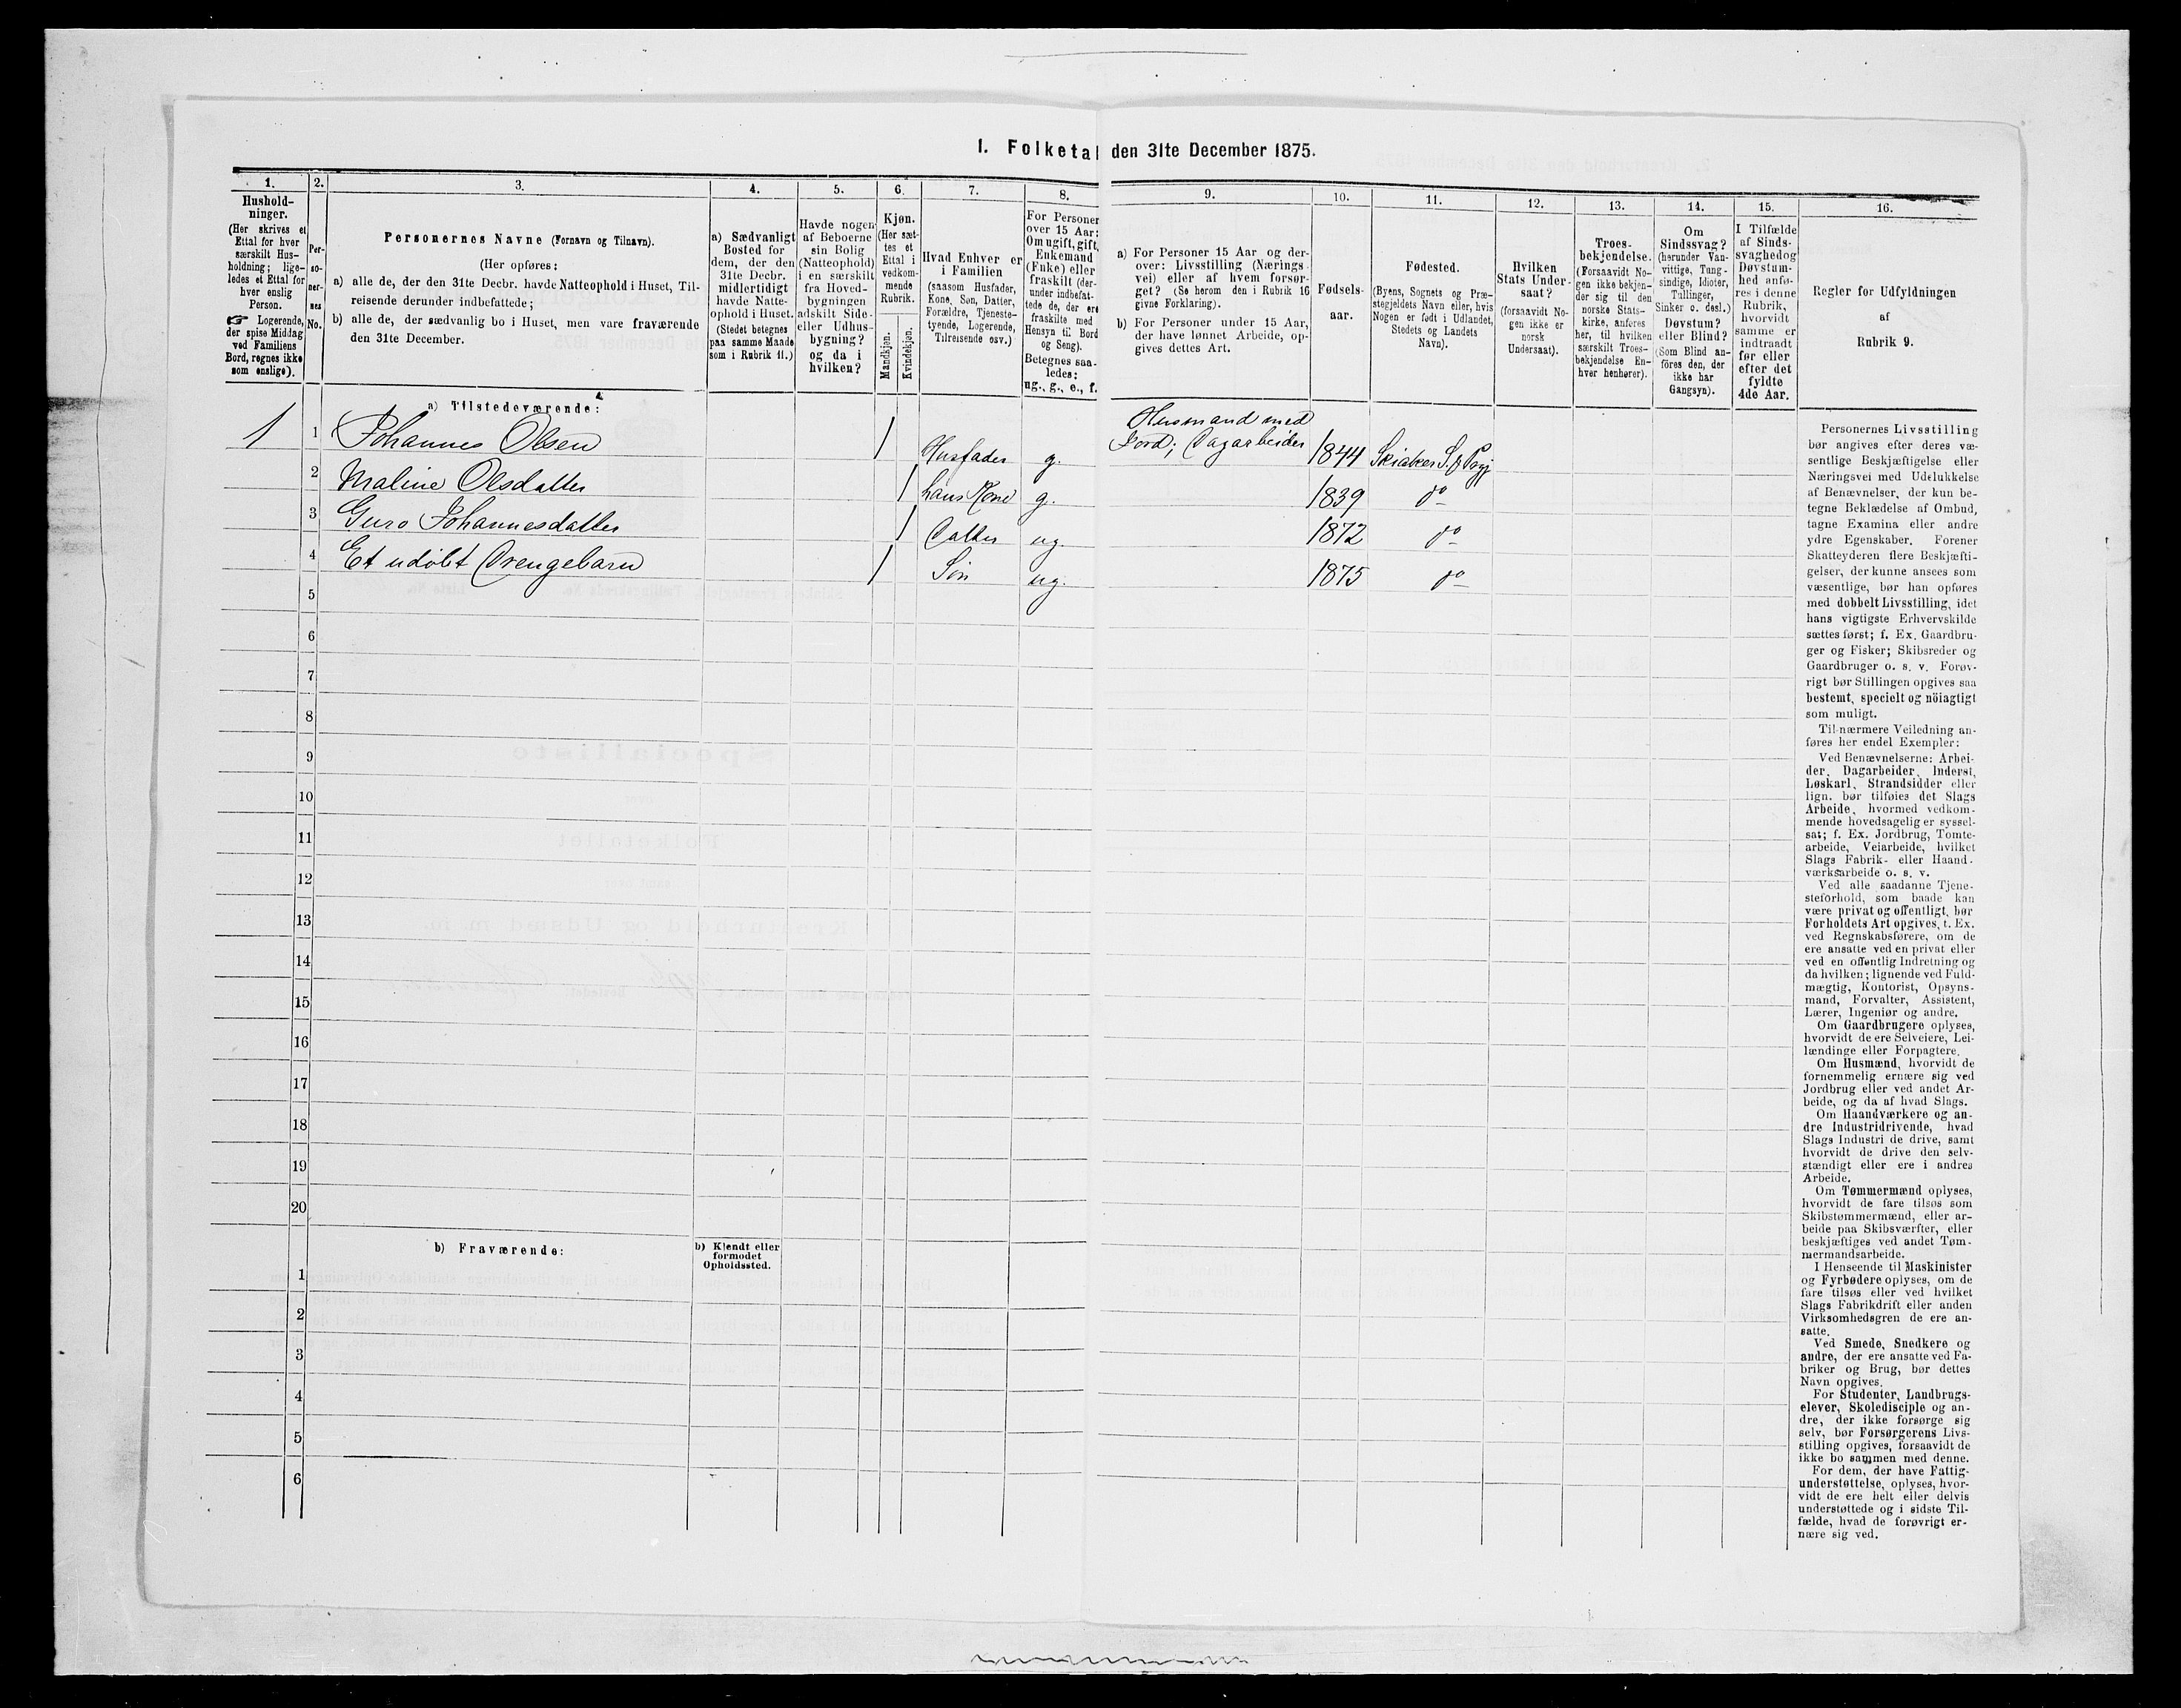 1. Folketal den 31te December 1875.
1.
Hushold-
ninger.
(Her skrives et
Ettal for hver
særskilt Hus-
holdning; lige-
ledes et Ettal for
hver enslig
Person.
☞ Logerende,
der spise Middag
ved Familiens
Bord, regnes ikke
som enslige).
2.
Per-
so-
ner-
nes
No.
3.
Personernes Navne (Fornavn og Tilnavn).
(Her opføres:
a) alle de, der den 31te Decbr. havde Natteophold i Huset, Til-
reisende derunder indbefattede;
b) alle de, der sædvanlig bo i Huset, men vare fraværende
den 31te December.
4.
a) Sædvanligt
Bosted for
dem, der den
31te Decbr.
midlertidigt
havde Natte-
ophold i Huset.
(Stedet betegnes
paa samme Maade
som i Rubrik 11.)
5.
Havde nogen
af Beboerne
sin Bolig
(Natteophold)
i en særskilt
fra Hoved-
bygningen
adskilt Side-
eller Udhus-
bygning?
og da i
hvilken?
6.
Kjøn.
(Her sæt-
tes et
Ettal i
vedkom-
mende
Rubrik.
Mandkjøn.
Kvindekjøn.
7.
Hvad Enhver er
i Familien
(saasom Husfader,
Kone, Søn, Datter,
Forældre, Tjeneste-
tyende, Logerende,
Tilreisende osv.)
8.
For Personer
over 15 Aar:
Om ugift, gift,
Enkemand
(Enke) eller
fraskilt (der-
under indbefat-
tede de, der ere
fraskilte med
Hensyn til Bord
og Seng).
Betegnes saa-
ledes:
ug., g., e., f.
9.
a) For Personer 15 Aar og der-
over: Livsstilling (Nærings-
vei) eller af hvem forsør-
get? (Se herom den i Rubrik 16
givne Forklaring).
b) For Personer under 15 Aar,
der have lønnet Arbeide, op-
gives dettes Art.
10.
Fødsels-
aar.
11.
Fødested.
(Byens, Sognets og Præ-
stegjeldets Navn eller, hvis
Nogen er født i Udlandet,
Stedets og Landets
Navn).
12.
Hvilken
Stats Under-
saat?
(forsaavidt No-
gen ikke er
norsk
Undersaat).
13.
Troes-
bekjendelse.
(Forsaavidt No-
gen ikke bekjen-
der sig til den
norske Stats-
kirke, anføres
her, til hvilken
særskilt Troes-
bekjendelse En-
hver henhører).
14.
Om
Sindssvag?
(herunder Van-
vittige, Tung-
sindige, Idioter,
Tullinger,
Sinker o. desl.)
Døvstum?
eller Blind?
(Som Blind an-
føres den, der
ikke har
Gangsyn).
15.
I Tilfælde
af Sinds-
svaghed og
Døvstum-
hed anfø-
res i denne
Rubrik,
hvorvidt
samme er
indtraadt
før eller
efter det
fyldte
4de Aar.
16.
Regler for Udfyldningen
af
Rubrik 9.
a) Tilstedeværende:
1 1 Johannes Olsen 1 Husfader g. Husmand med
Jord; Dagarbeider 1844 Skiaker S. & Prgj
2 Maline Olsdatter 1 hans Kone g. 1839 do
3 Guro Johannesdatter 1 Datter ug. 1872 do
4 Et udøbt Drengebarn 1 Søn ug. 1875 do
5
6
7
8
9
10
11
12
13
14
15
16
17
18
19
20
b) Fraværende:
b) Kjendt eller
formodet
Opholdssted.
1
2
3
4
5
6
Personernes Livsstilling
bør angives efter deres væ-
sentlige Beskjæftigelse eller
Næringsvei med Udelukkelse
af Benævnelser, der kun be-
tegne Beklædelse af Ombud,
tagne Examina eller andre
ydre Egenskaber. Forener
Skatteyderen flere Beskjæfti-
gelser, der kunne ansees som
væsentlige, bør han opføres
med dobbelt Livsstilling, idet
hans vigtigste Erhvervskilde
sættes først; f. Ex. Gaardbru-
ger og Fisker; Skibsreder og
Gaardbruger o. s. v. Forøv-
rigt bør Stillingen opgives saa
bestemt, specielt og nöiagtigt
som muligt.
Til nærmere Veiledning an-
føres her endel Exempler:
Ved Benævnelserne: Arbei-
der, Dagarbeider, Inderst,
Løskarl, Strandsidder eller
lign. bør tilføies det Slags
Arbeide, hvormed vedkom-
mende hovedsagelig er syssel-
sat; f. Ex. Jordbrug, Tomte-
arbeide, Veiarbeide, hvilket
Slags Fabrik- eller Haand-
værksarbeide o. s. v.
Ved alle saadanne Tjene-
steforhold, som baade kan
være privat og offentligt, bør
Forholdets Art opgives, t. Ex.
ved Regnskabsførere, om de
ere ansatte ved en privat eller
ved en offentlig Indretning og
da hvilken; lignende ved Fuld-
mægtig, Kontorist, Opsyns-
mand, Forvalter, Assistent,
Lærer, Ingeniør og andre.
Om Gaardbrugere oplyses,
hvorvidt de ere Selveiere, Lei-
lændinge eller Forpagtere.
Om Husmænd, hvorvidt de
fornemmelig ernære sig ved
Jordbrug eller ved andet Ar-
beide, og da af hvad Slags.
Om Haandværkere og an-
dre Industridrivende, hvad
Slags Industri de drive, samt
hvorvidt de drive den selv-
stændigt eller ere i andres
Arbeide.
Om Tømmermænd oplyses,
hvorvidt de fare tilsøs som
Skibstømmermænd, eller ar-
beide paa Skibsværfter, eller
beskjæftiges ved andet Tøm-
mermandsarbeide.
I Henseende til Maskinister
og Fyrbødere oplyses, om de
fare tilsøs eller ved hvilket
Slags Fabrikdrift eller anden
Virksomhedsgren de ere an-
satte.
Ved Smede, Snedkere og
andre, der ere ansatte ved Fa-
briker og Brug, bør dettes
Navn opgives.
For Studenter, Landbrugs-
elever, Skoledisciple og an-
dre, der ikke forsørge sig
selv, bør Forsørgerens Livs-
stilling opgives, forsaavidt de
ikke bo sammen med denne.
For dem, der have Fattig-
understøttelse, oplyses, hvor-
vidt de ere helt eller delvis
understøttede og i sidste Til-
fælde, hvad de forøvrigt er-
nære sig ved.